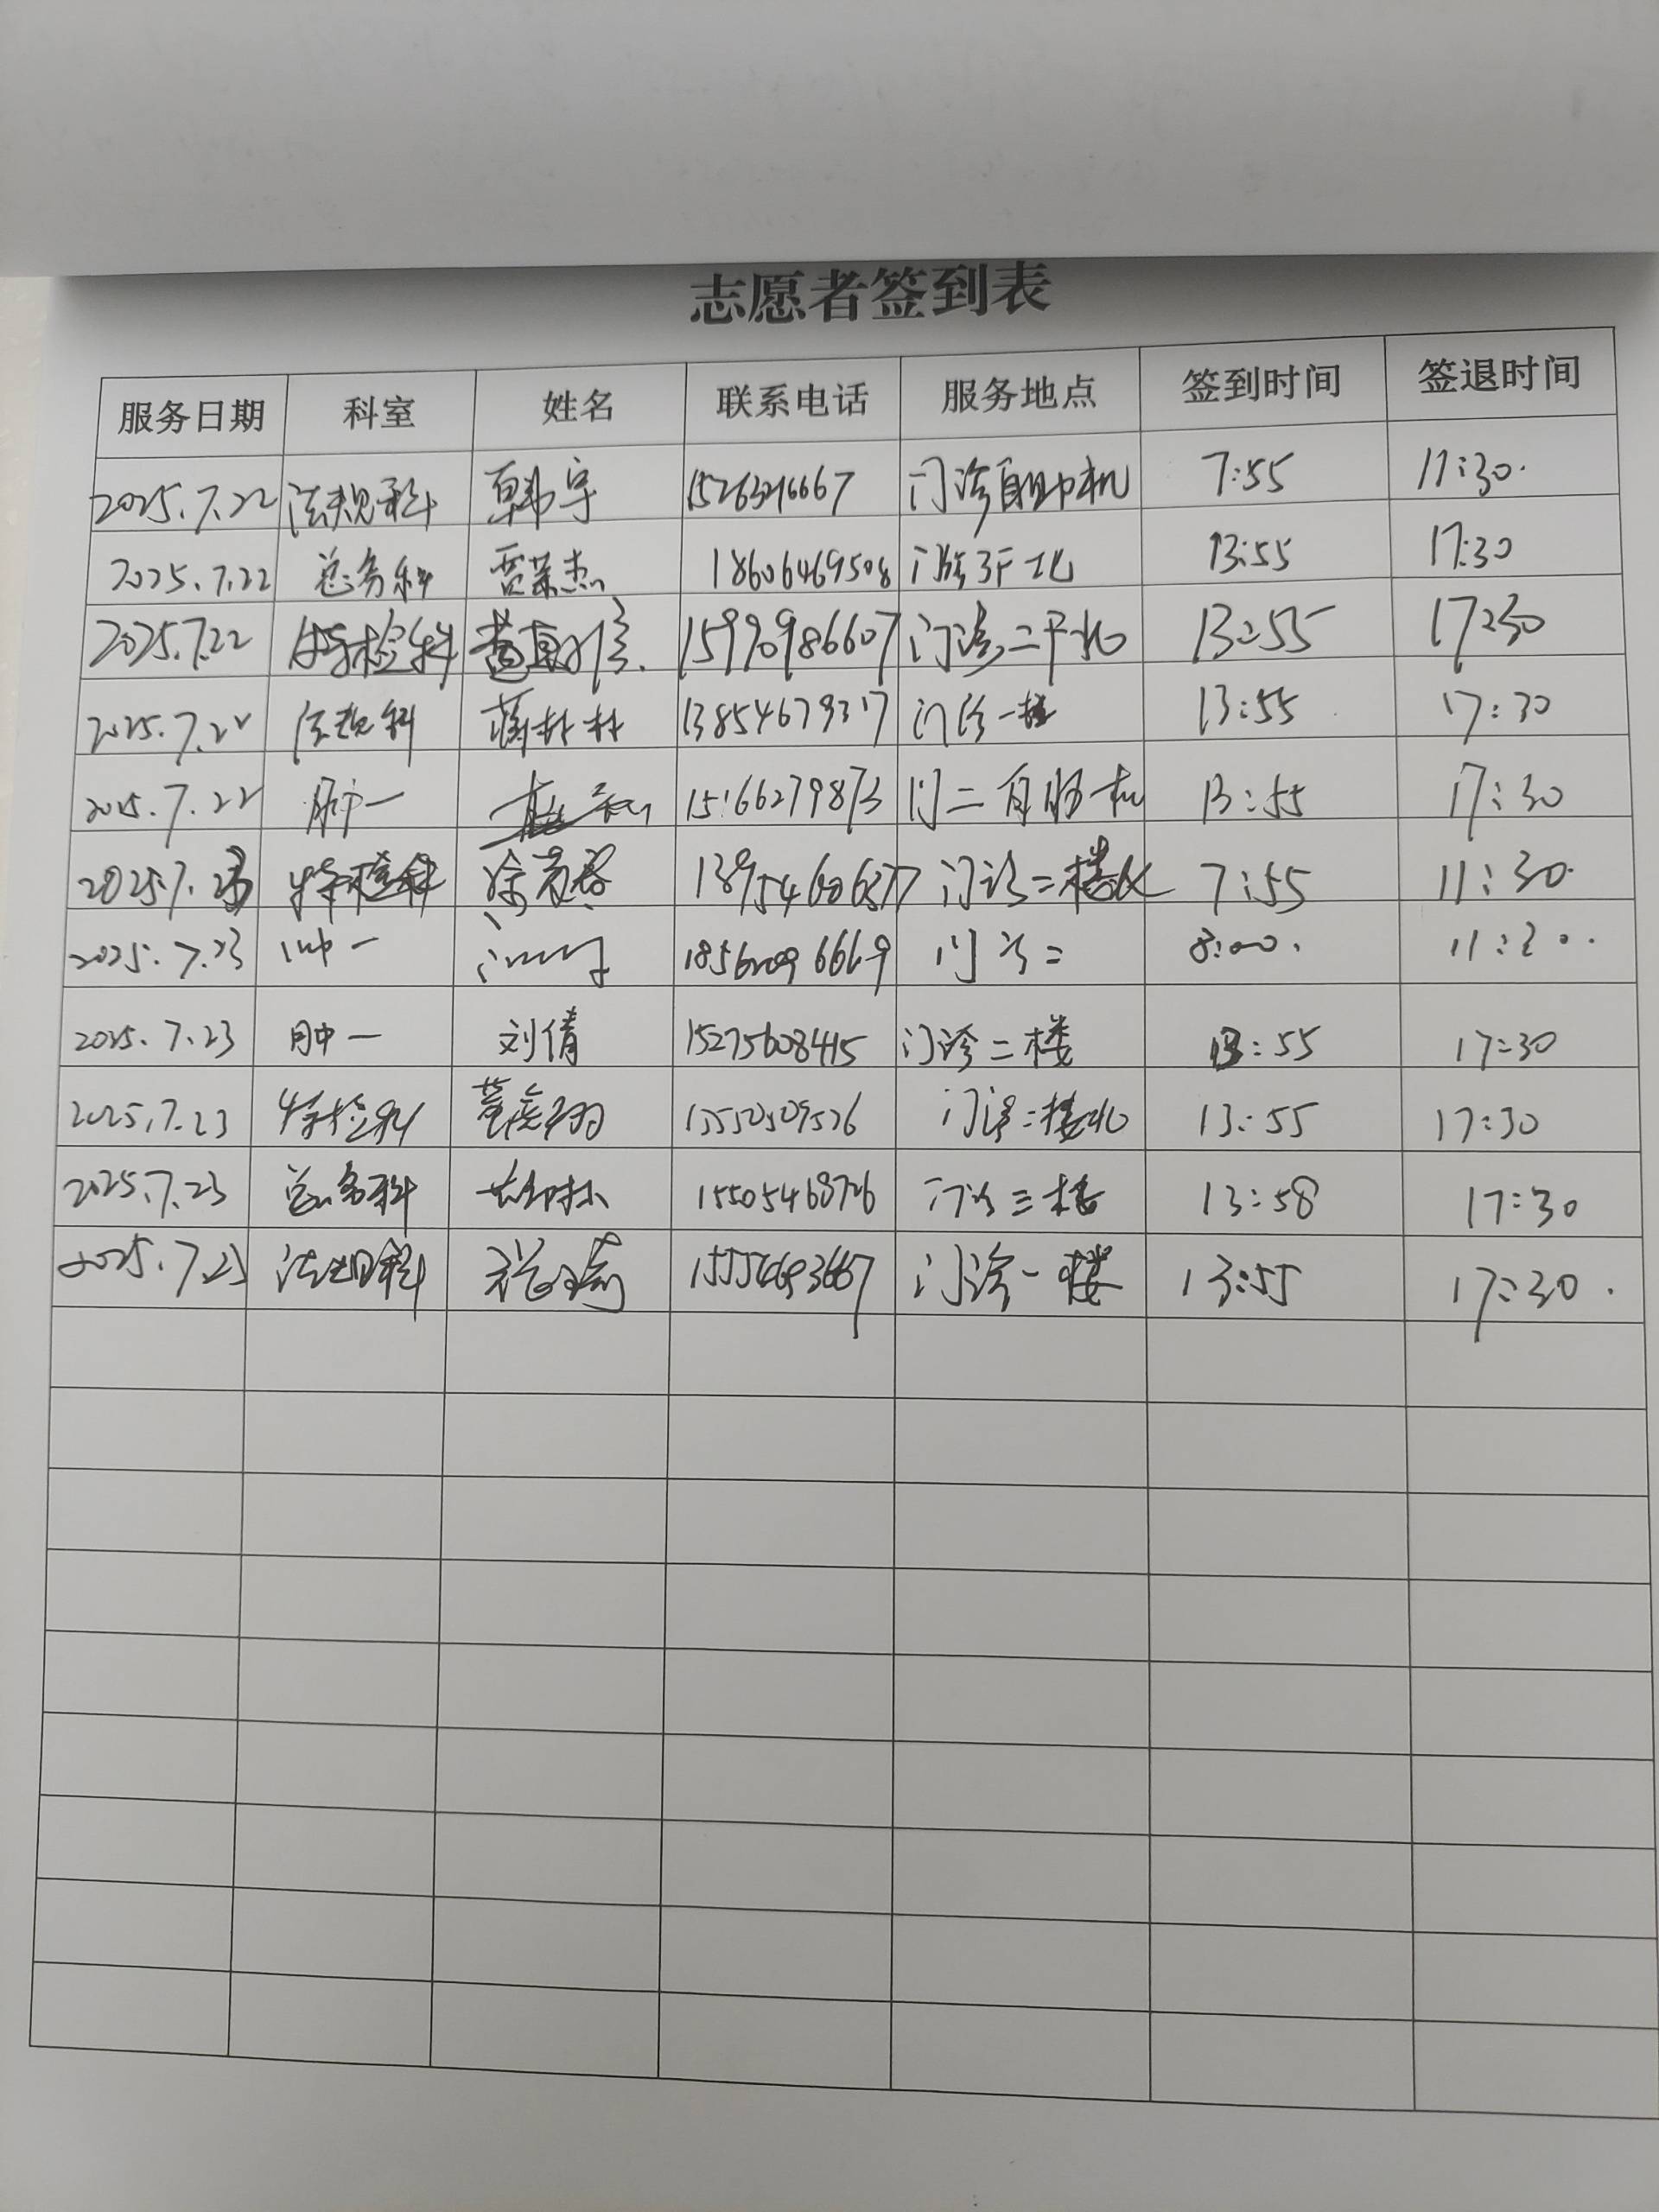 志愿者签到表
服务日期 科室 姓名 联系电话 服务地点 签到时间 签退时间
2025.7.22 法规科 韩宇 门诊自助机 7:55 11:30.
2025.7.22 总务科 贾荣杰 18606469508 13:55 17:30
2025.7.22 特检科 15990986607 门诊二平北 13:55 17:30
2025.7.22 法规科 蒋林林 13854679317 门诊一楼 13:55 17:30
2025.7.22 肿一 15166279873 门二自助机 13:55 17:30
2025.7.23 特检科 门诊二楼北 7:55 11:30.
2025.7.23 肿一 门诊二 8:00. 11:30.
2025.7.23 肿一 刘倩 15275608415 门诊二楼 13:55 17:30
2025.7.23 特检科 门诊二楼北 13:55 17:30
2025.7.23 总务科 15505468726 门诊三楼 13:58 17:30
2025.7.23 法规科 15554693667 门诊一楼 13:55 17:30.